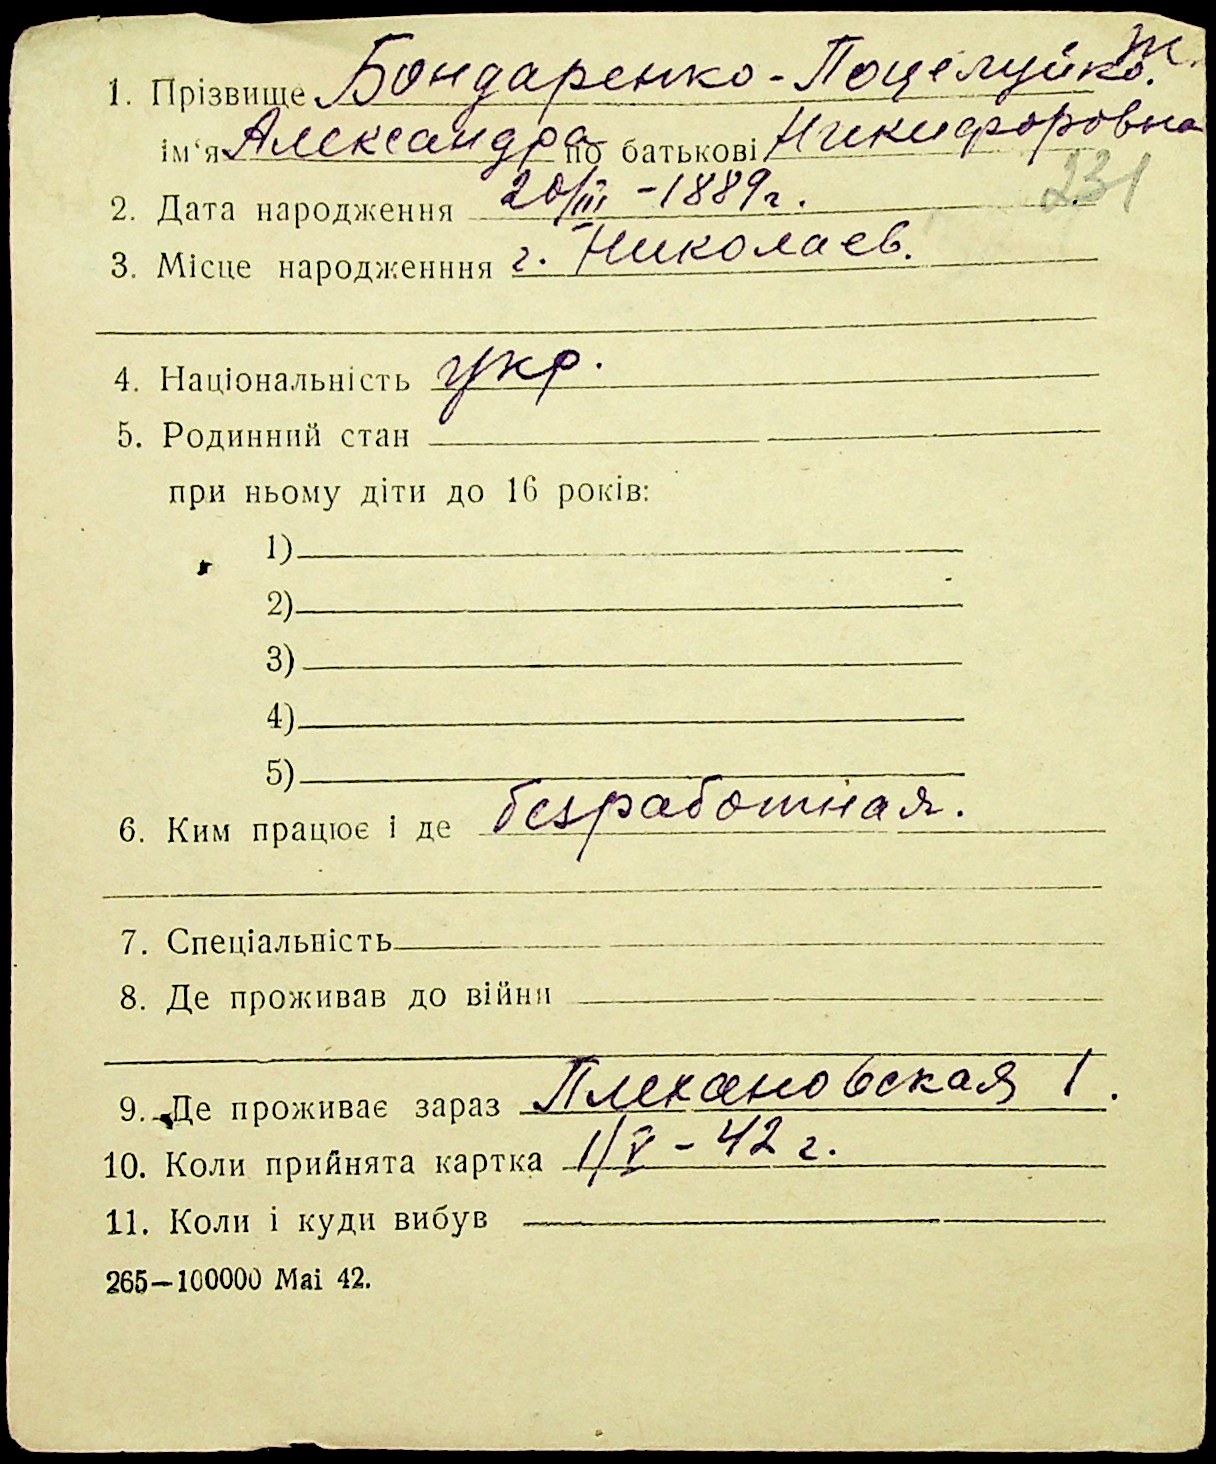 ж.
1. Прізвище Бондаренко-Поцелуйко.
ім‘я Александра по батькові Никифоровна
231
2. Дата народження 20/III -1889г.
3. Місце народженння г. Николаев.
4. Національність укр.
5. Родинний стан
при ньому діти до 16 років:
1)
2)
3)
4)
5)
6. Ким працює і де безработная.
7. Спеціальність
8. Де проживав до війни
9. Де проживає зараз Плехановская 1.
10. Коли прийнята картка 1/V - 42 г.
11. Коли і куди вибув
265—100000 Mai 42.